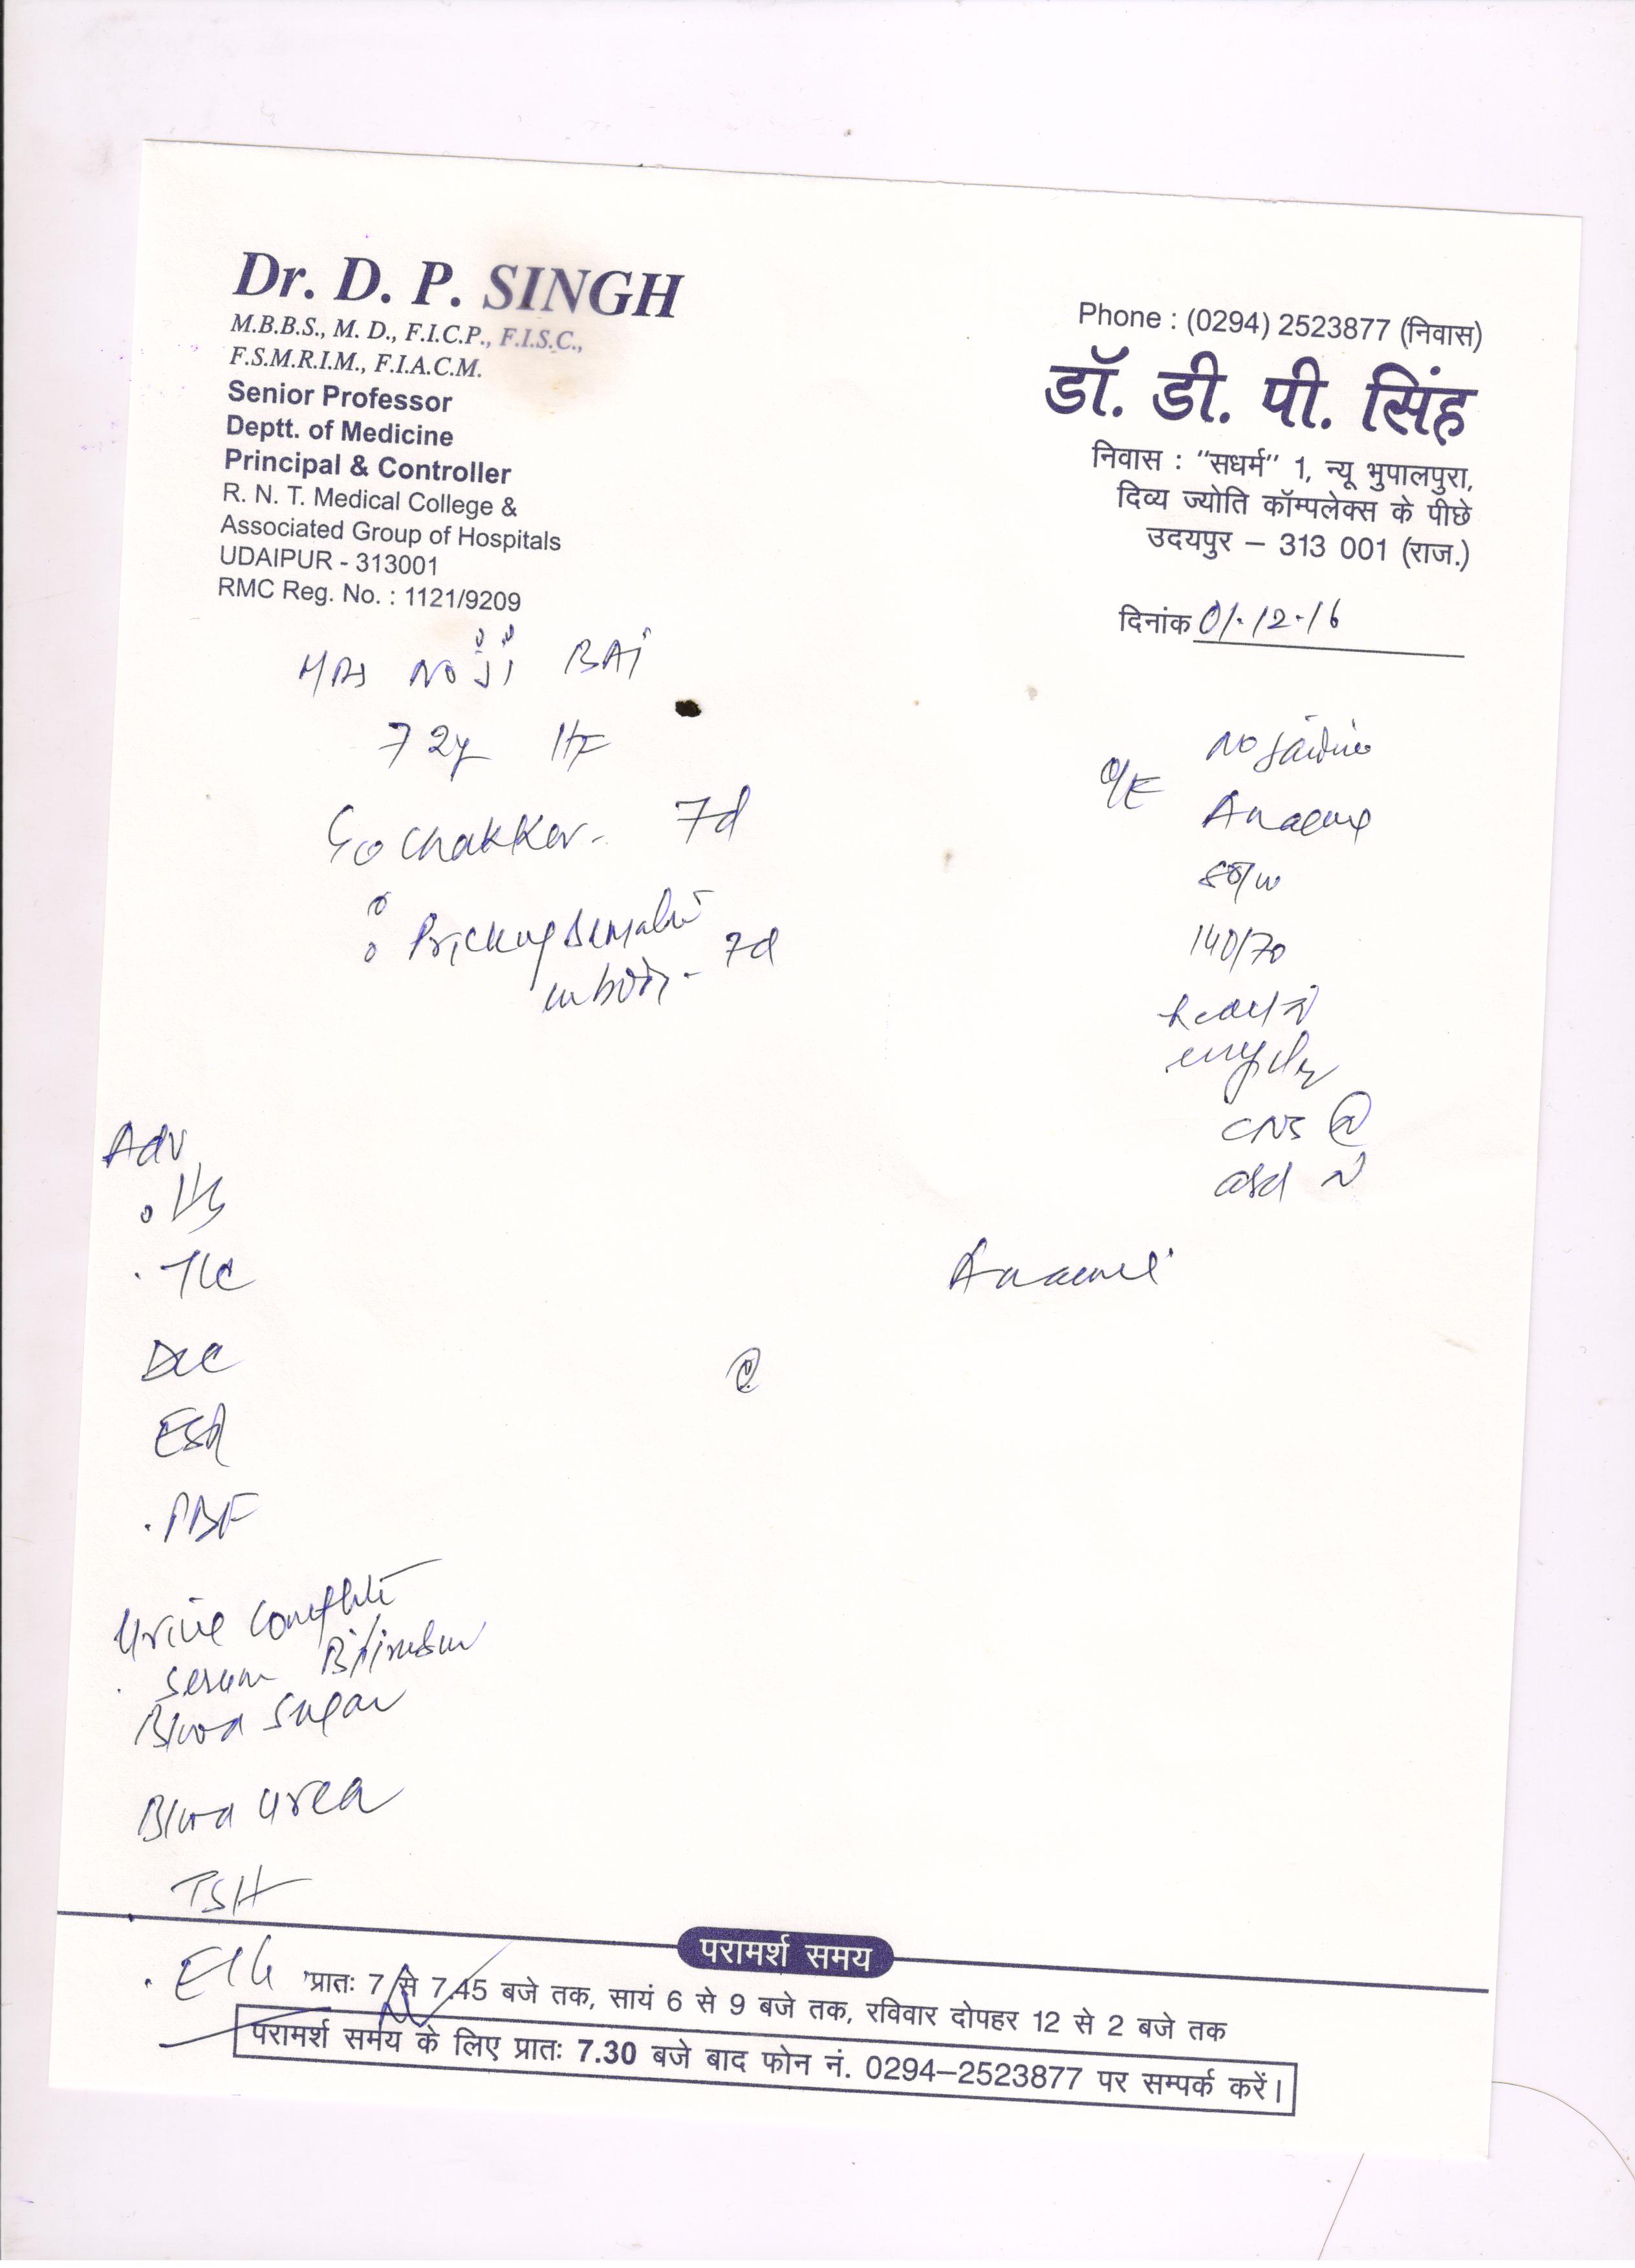 Dr. D. P. SINGH
M.B.B.S., M. D., F.I.C.P., F.I.S.C.,
F.S.M.R.I.M., F.I.A.C.M.
Senior Professor
Deptt. of Medicine
Principal & Controller
R. N. T. Medical College &
Associated Group of Hospitals
UDAIPUR - 313001
RMC Reg. No. : 1121/9209
Phone : (0294) 2523877 (निवास)
डॉ. डी. पी. सिंह
निवास : “सधर्म” 1, न्यू भुपालपुरा,
दिव्य ज्योति कॉम्पलेक्स के पीछे
उदयपुर – 313 001 (राज.)
दिनांक 01.12.16
MRS NOJI BAI
72y
Chakker - 7d
Pricking 7d
in body -
No
O/E
140/70
CNS
Adv
TLC
DLC
ESR
PBF
Urine Complete
Serum Bilirubin
Blood Sugar
Blood Urea
TSH
परामर्श समय
प्रातः 7 से 7.45 बजे तक, सायं 6 से 9 बजे तक, रविवार दोपहर 12 से 2 बजे तक
परामर्श समय के लिए प्रातः 7.30 बजे बाद फोन नं. 0294–2523877 पर सम्पर्क करें।